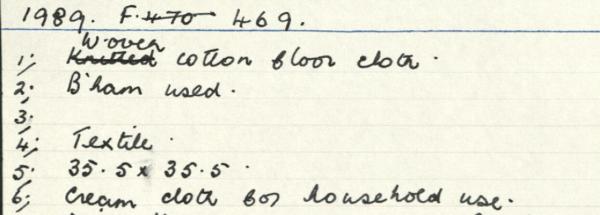 1989. F. 470 469.
Woven
1; Knitted cotton floor cloth.
2; B'ham used.
3;
4; Textile.
5; 35.5 x 35.5.
6; Cream cloth for household use.